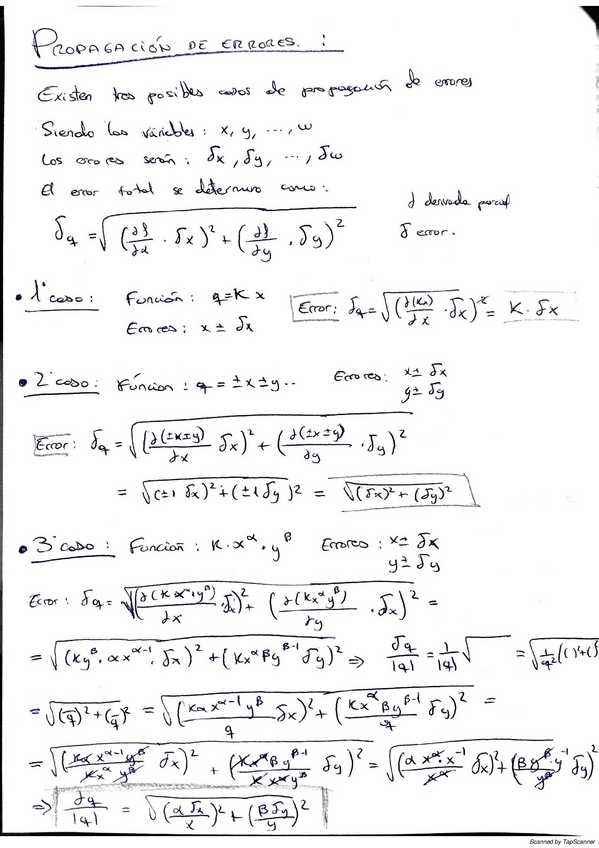 PROPAGACIÓN DE ERRORES. :
Existen tres posibles casos de propagación de errores
Siendo las variables : x, y, ..., w
Los errores serán : δx, δy, ..., δw
El error total se determina como:
∂ derivada parcial
δq = √((∂f/∂x · δx)² + (∂f/∂y · δy)²)
δ error.
• 1º caso: Función: q=Kx Error: δq = √((∂(Kx)/∂x · δx)²) = K·δx
Errores: x ± δx
• 2º caso: Función : q = ±x±y.. Errores: x± δx
y± δy
Error: δq = √((∂(±x±y)/∂x δx)² + (∂(±x±y)/∂y · δy)²)
= √((±1 δx)²+(±1 δy)²) = √((δx)²+(δy)²)
• 3º caso: Función: K·x^α·y^β Errores : x± δx
y± δy
Error: δq= √((∂(Kx^α·y^β)/∂x · δx)² + (∂(Kx^α y^β)/∂y · δx)²) =
= √((Ky^β·αx^α-1·δx)² + (Kx^αβy^β-1 δy)²) ⇒ δq/|q| = 1/|q| √ = √(1/q²(()²+()
= √((/q)²+(/q)²) = √((Kαx^α-1y^β/q δx)² + (Kx^αβy^β-1/q δy)²) =
= √((Kαx^α-1y^β/Kx^αy^β δx)² + (Kx^αβy^β-1/Kx^αy^β δy)²) = √((αx^α·x^-1/x^α δx)² + (βy^β·y^-1/y^β δy)²)
⇒ δq/|q| = √((αδx/x)² + (βδy/y)²)
Scanned by TapScanner